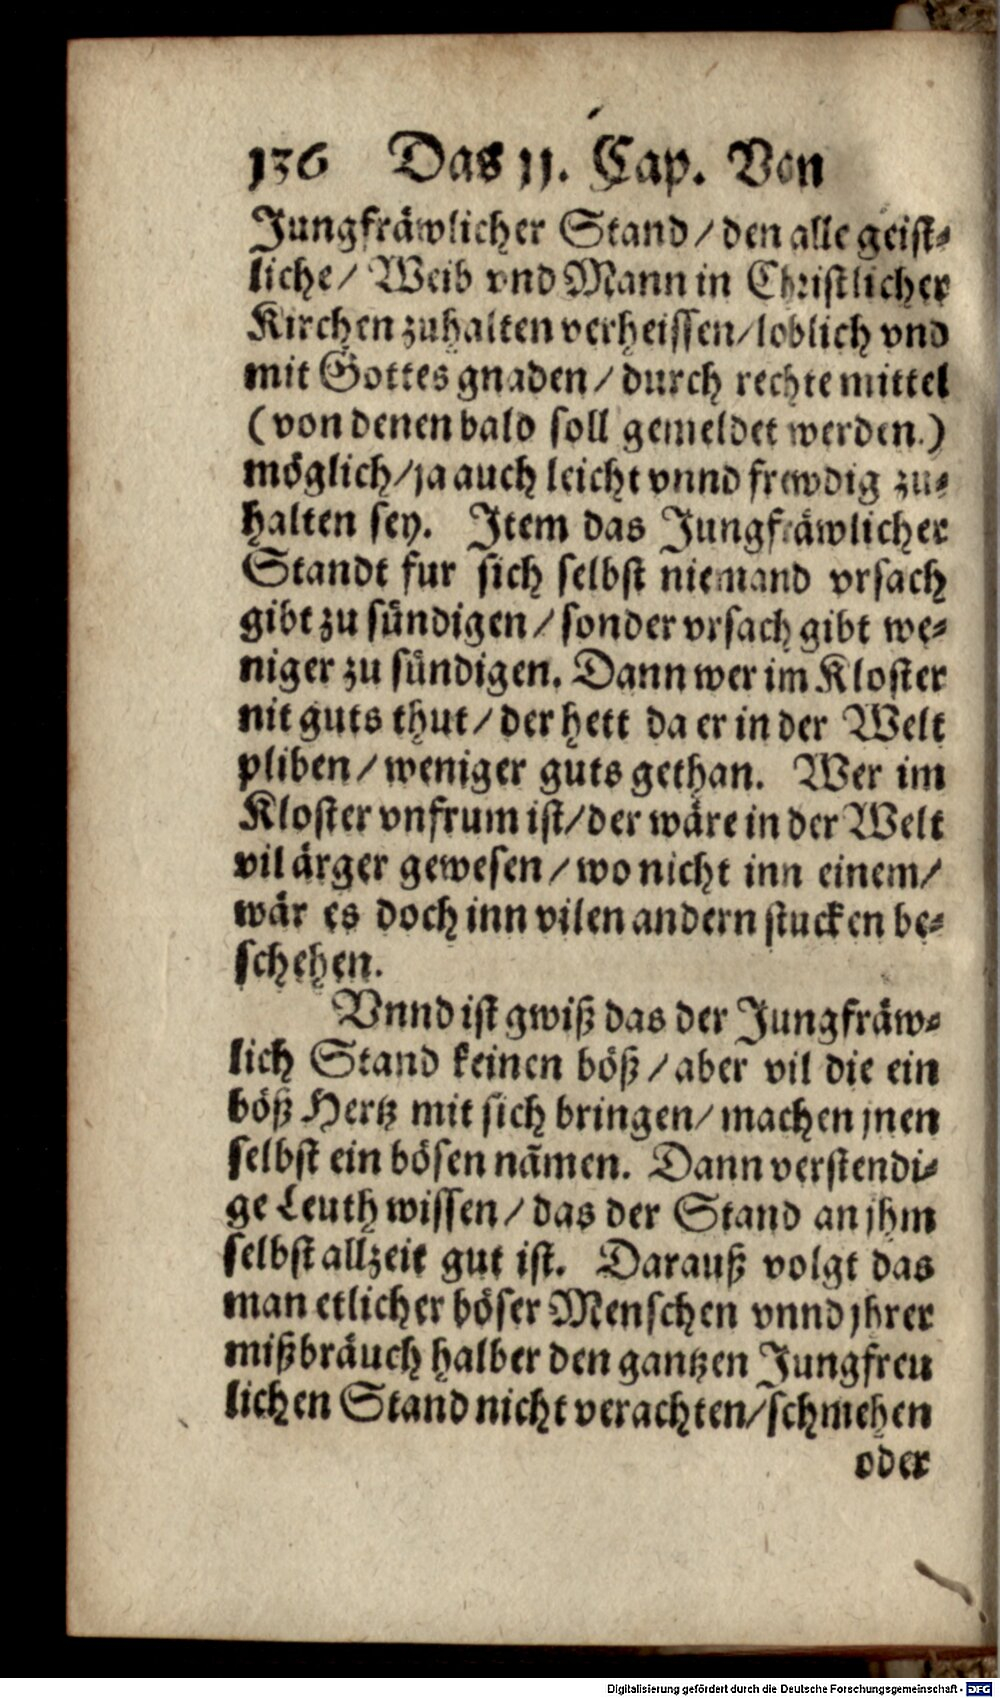 136 Das 11. Cap. Von
Jungfräwlicher Stand / den alle geist⸗
liche / Weib vnd Mann in Christlicher
Kirchen zuhalten verheissen / loblich vnd
mit Gottes gnaden / durch rechte mittel
(von denen bald soll gemeldet werden.)
möglich / ja auch leicht vnnd frewdig zu⸗
halten sey. Item das Jungfräwlicher
Standt fur sich selbst niemand vrsach
gibt zu sündigen / sonder vrsach gibt we⸗
niger zu sündigen. Dann wer im Kloster
nit guts thut / der hett da er in der Welt
pliben / weniger guts gethan. Wer im
Kloster vnfrum ist / der wäre in der Welt
vil ärger gewesen / wo nicht inn einem /
wär es doch inn vilen andern stucken be⸗
schehen.
Vnnd ist gwiß das der Jungfräw⸗
lich Stand keinen böß / aber vil die ein
böß Hertz mit sich bringen / machen jnen
selbst ein bösen nãmen. Dann verstendi⸗
ge Leuth wissen / das der Stand an jhm
selbst allzeit gut ist. Darauß volgt das
man etlicher böser Menschen vnnd jhrer
mißbräuch halber den gantzen Jungfreu
lichen Stand nicht verachten / schmehen
oder
Digitalisierung gefördert durch die Deutsche Forschungsgemeinschaft - DFG